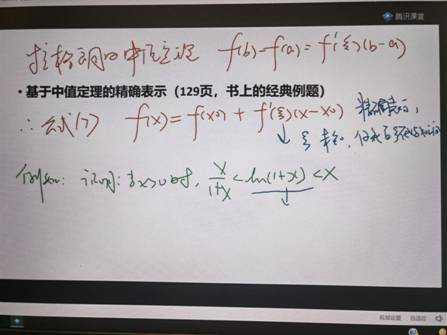 腾讯课堂
拉格朗日中值定理 f(b)-f(a)=f'(ξ)(b-a)
• 基于中值定理的精确表示（129页，书上的经典例题）
∴ 公式(7) f(x)=f(x0)+f'(ξ)(x-x0) 精确表示,
ξ 未知,
例如: 证明: 当x>0时, x/(1+x) < ln(1+x) < x